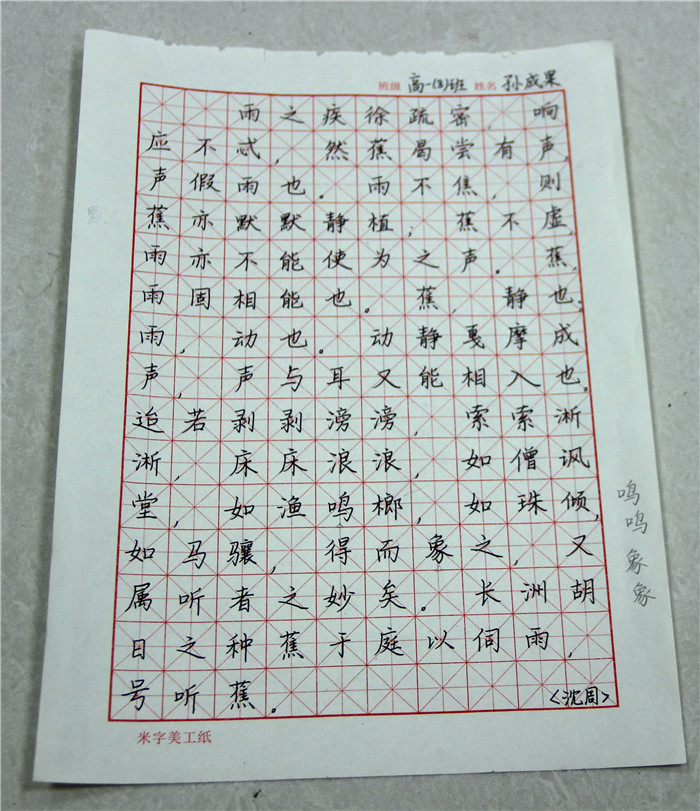 班级 高一(8)班 姓名 孙成果
雨之疾徐疏密，响
应不忒，然蕉曷尝有声，
声假雨也。雨不焦，则
蕉亦默默静植；蕉不虚，
雨亦不能使为之声。蕉，
雨固相能也。蕉，静也；
雨，动也。动静戛摩成
声，声与耳又能相入也。
迨若剥剥滂滂，索索淅
淅，床床浪浪，如僧讽
堂，如渔鸣榔，如珠倾，
如马骧，得而象之，又
属听者之妙矣。长洲胡
日之种蕉于庭以伺雨，
号听蕉。
<沈周>
米字美工纸
默
鸣
鸣
象
象